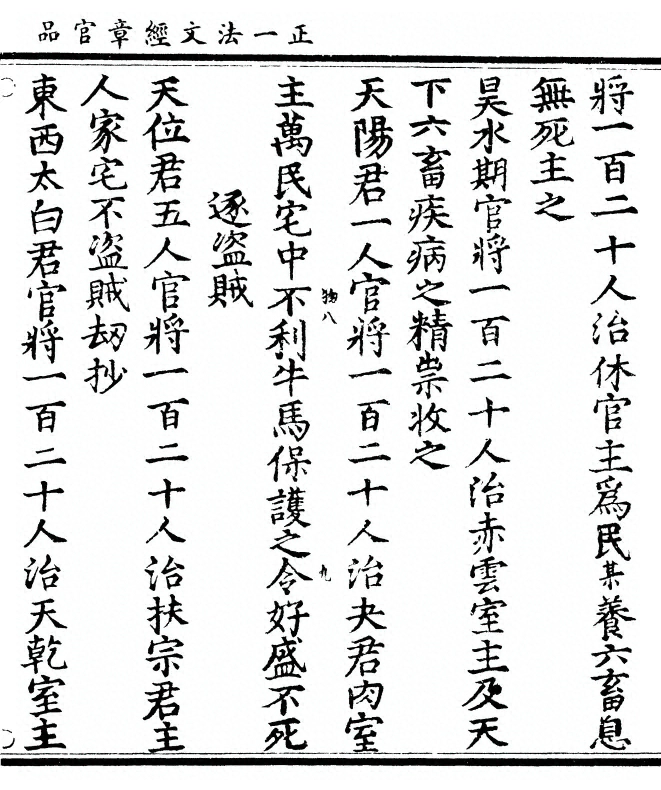 正一法文經章官品
將一百二十人治休官主爲民某養六畜息
無死主之
昊水期官將一百二十人治赤雲室主及天
下六畜疾病之精祟收之
天陽君一人官將一百二十人治夬君肉室
主萬民宅中不利牛馬保護之令好盛不死
物八
九
逐盜賊
天位君五人官將一百二十人治扶宗君主
人家宅不盜賊刼抄
東西太白君官將一百二十人治天乾室主